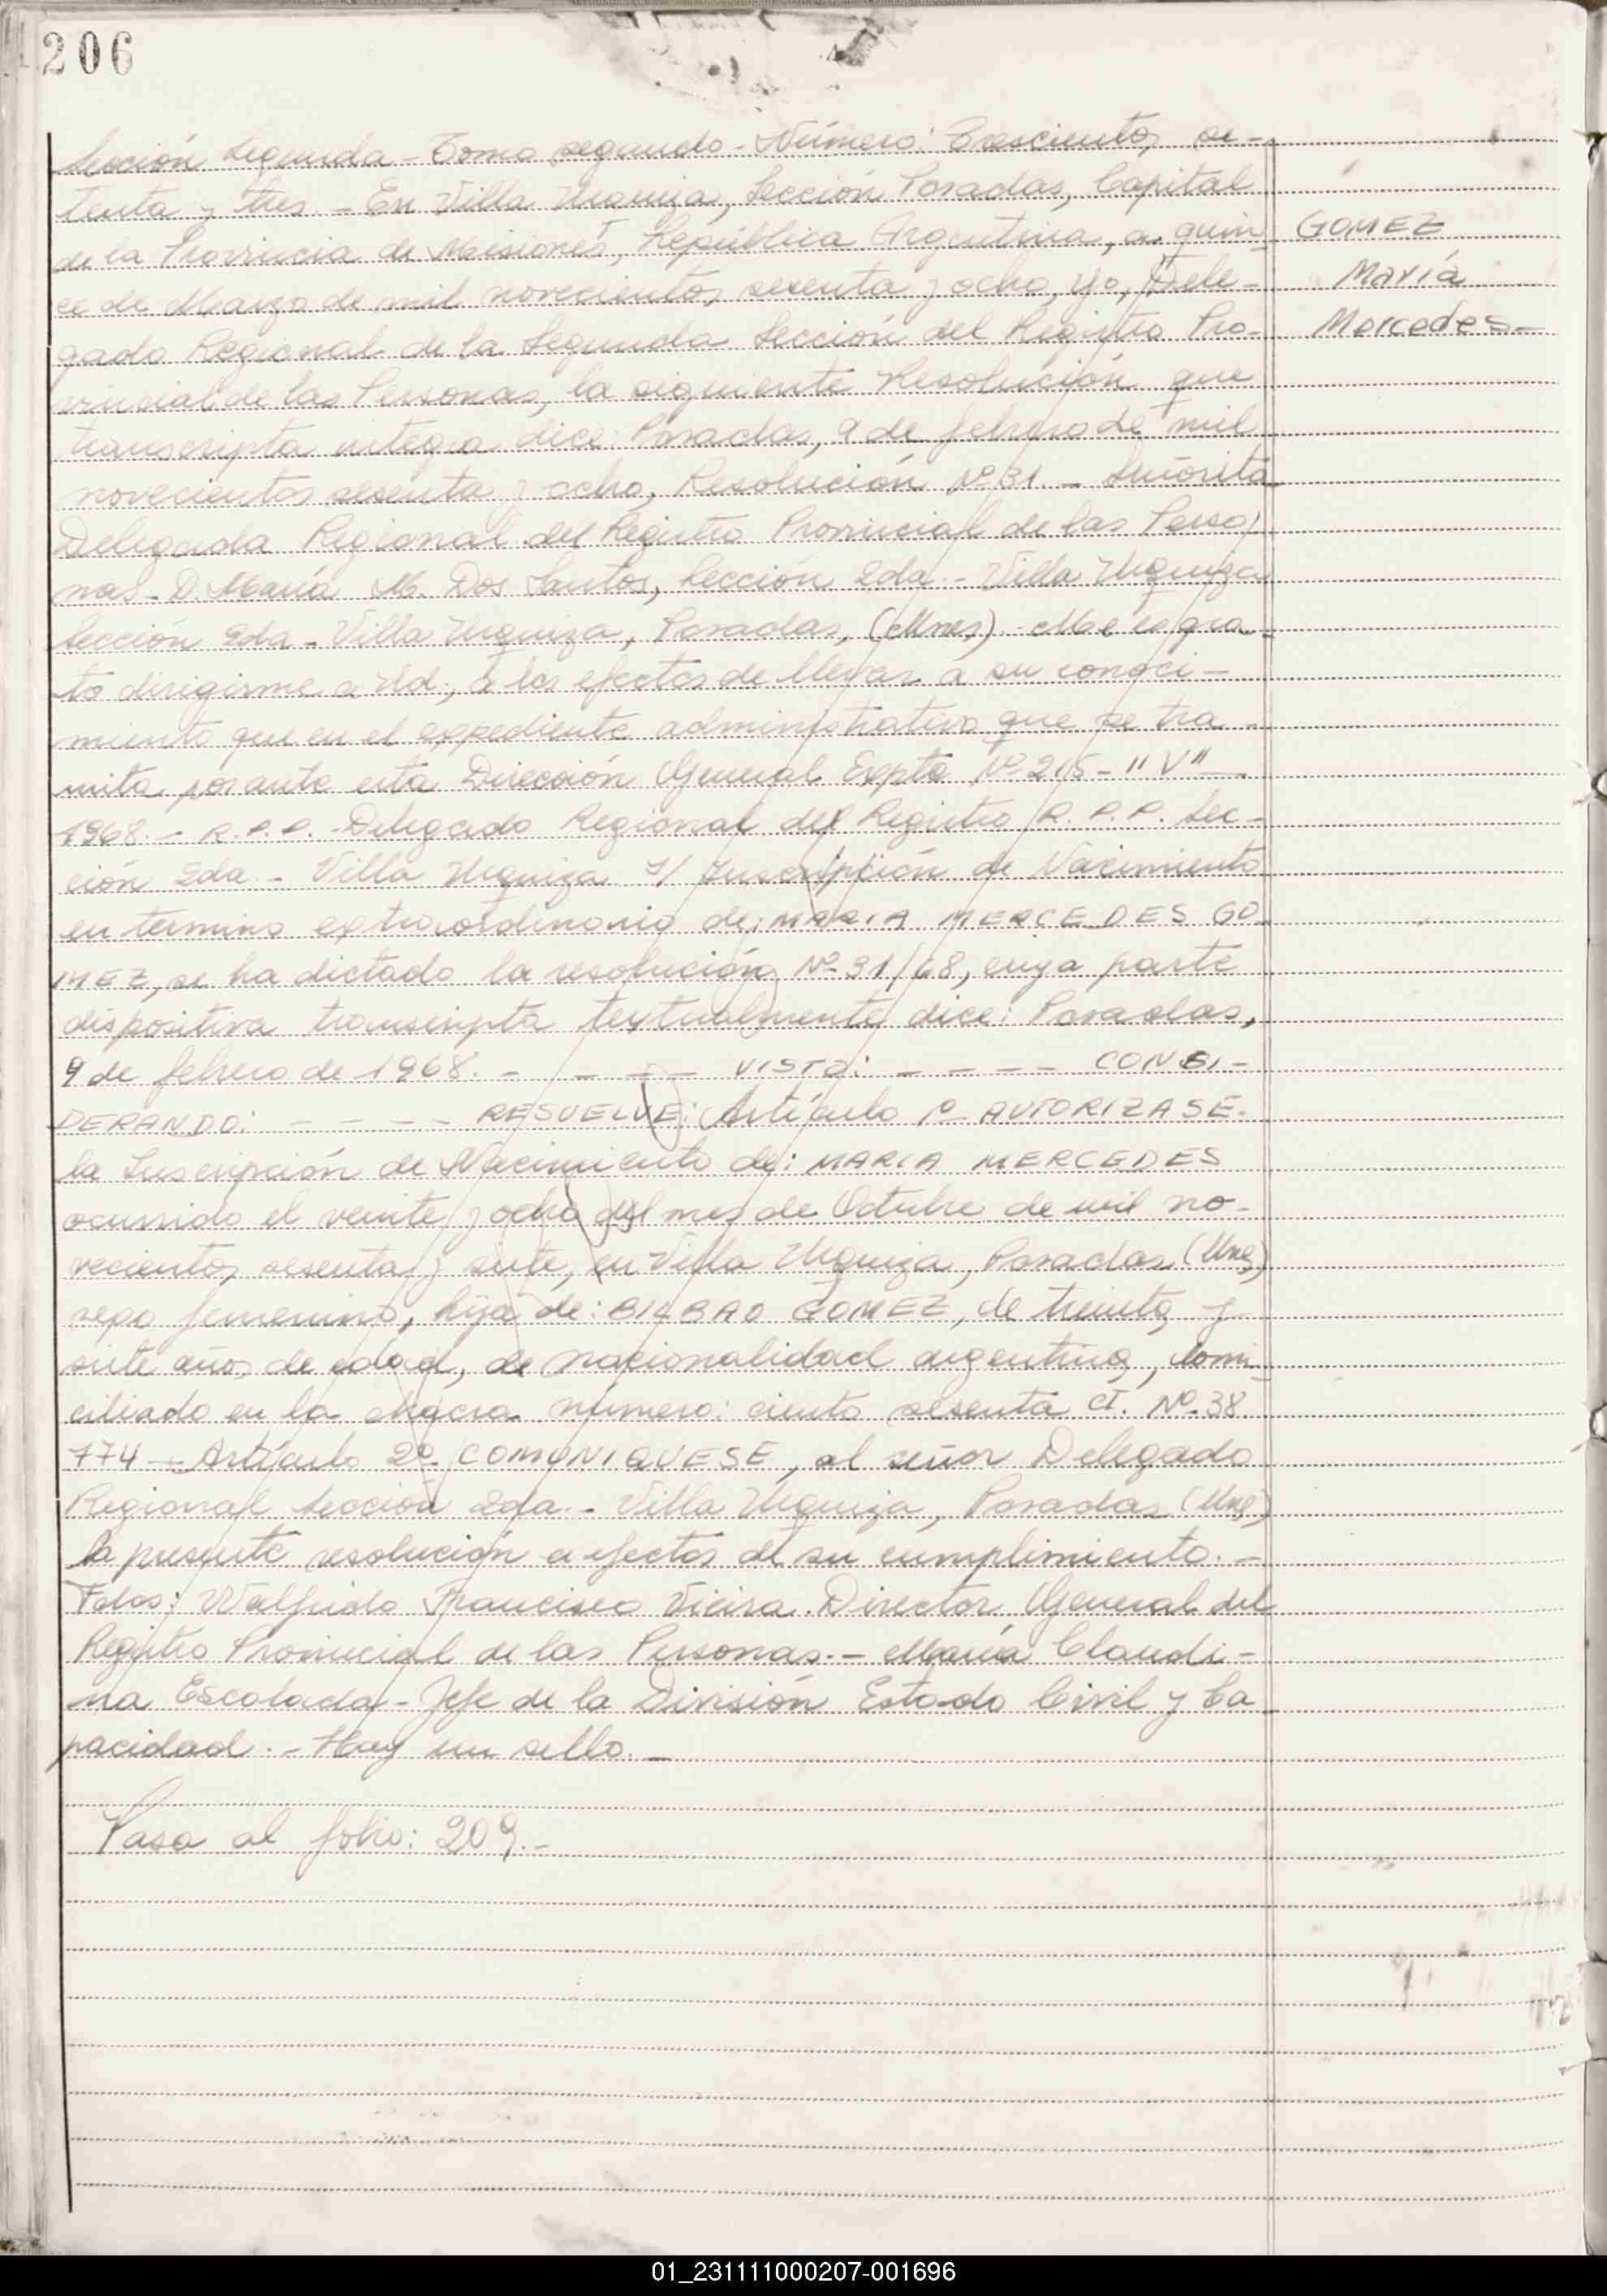 206
Sección Segunda - Tomo segundo - Número: Trescientos se-
tenta y tres. - En Villa Urquiza, Sección Posadas, Capital
de la Provincia de Misiones, República Argentina, a quin-
ce de Marzo de mil novecientos sesenta y ocho, yo, Dele-
gado Regional de la Segunda Sección del Registro Pro-
vincial de las Personas, la siguiente Resolución que
transcripta integra dice: Posadas, 9 de febrero de mil
novecientos sesenta y ocho, Resolución Nº 31. - Señorita
Delegada Regional del Registro Provincial de las Perso-
nas - D. María M. Dos Santos, Sección 2da. - Villa Urquiza
Sección 2da - Villa Urquiza, Posadas, (Mnes). - Me es gra-
to dirigirme a Ud., a los efectos de llevar a su conoci-
miento que en el expediente administrativo que se tra-
mita por ante esta Dirección General Expte Nº 215 - "V" -
1968. - R.P.P. - Delegado Regional del Registro R.P.P. Sec-
ción 2da. - Villa Urquiza S/ Inscripción de Nacimiento
en termino extraordinario de: MARIA MERCEDES GO-
MEZ, se ha dictado la resolución Nº 31/68, cuya parte
dispositiva transcripta textualmente dice: Posadas,
9 de febrero de 1968. - - - - VISTO: - - - - CONSI-
DERANDO: - - - - RESUELVE: Artículo 1º AUTORIZASE.
la Inscripción de Nacimiento de: MARIA MERCEDES
ocurrido el veinte y ocho del mes de Octubre de mil no-
vecientos sesenta y siete, en Villa Urquiza, Posadas (Mnes)
sexo femenino, hija de: BILBAO GOMEZ, de treinta y
siete años de edad, de nacionalidad argentina, domi-
ciliado en la chacra número: ciento sesenta CI. Nº 38.
774 - Artículo 2º COMUNIQUESE, al señor Delegado
Regional Sección 2da. - Villa Urquiza, Posadas (Mnes)
la presente resolución a efectos de su cumplimiento. -
Fdos: Walfrido Francisco Vieira. Director General del
Registro Provincial de las Personas. - María Claudi-
na Escalada - Jefe de la División Estado Civil y Ca-
pacidad. - Hay un sello. -
Pasa al folio: 209. -
GOMEZ
María
Mercedes -
01_231111000207-001696